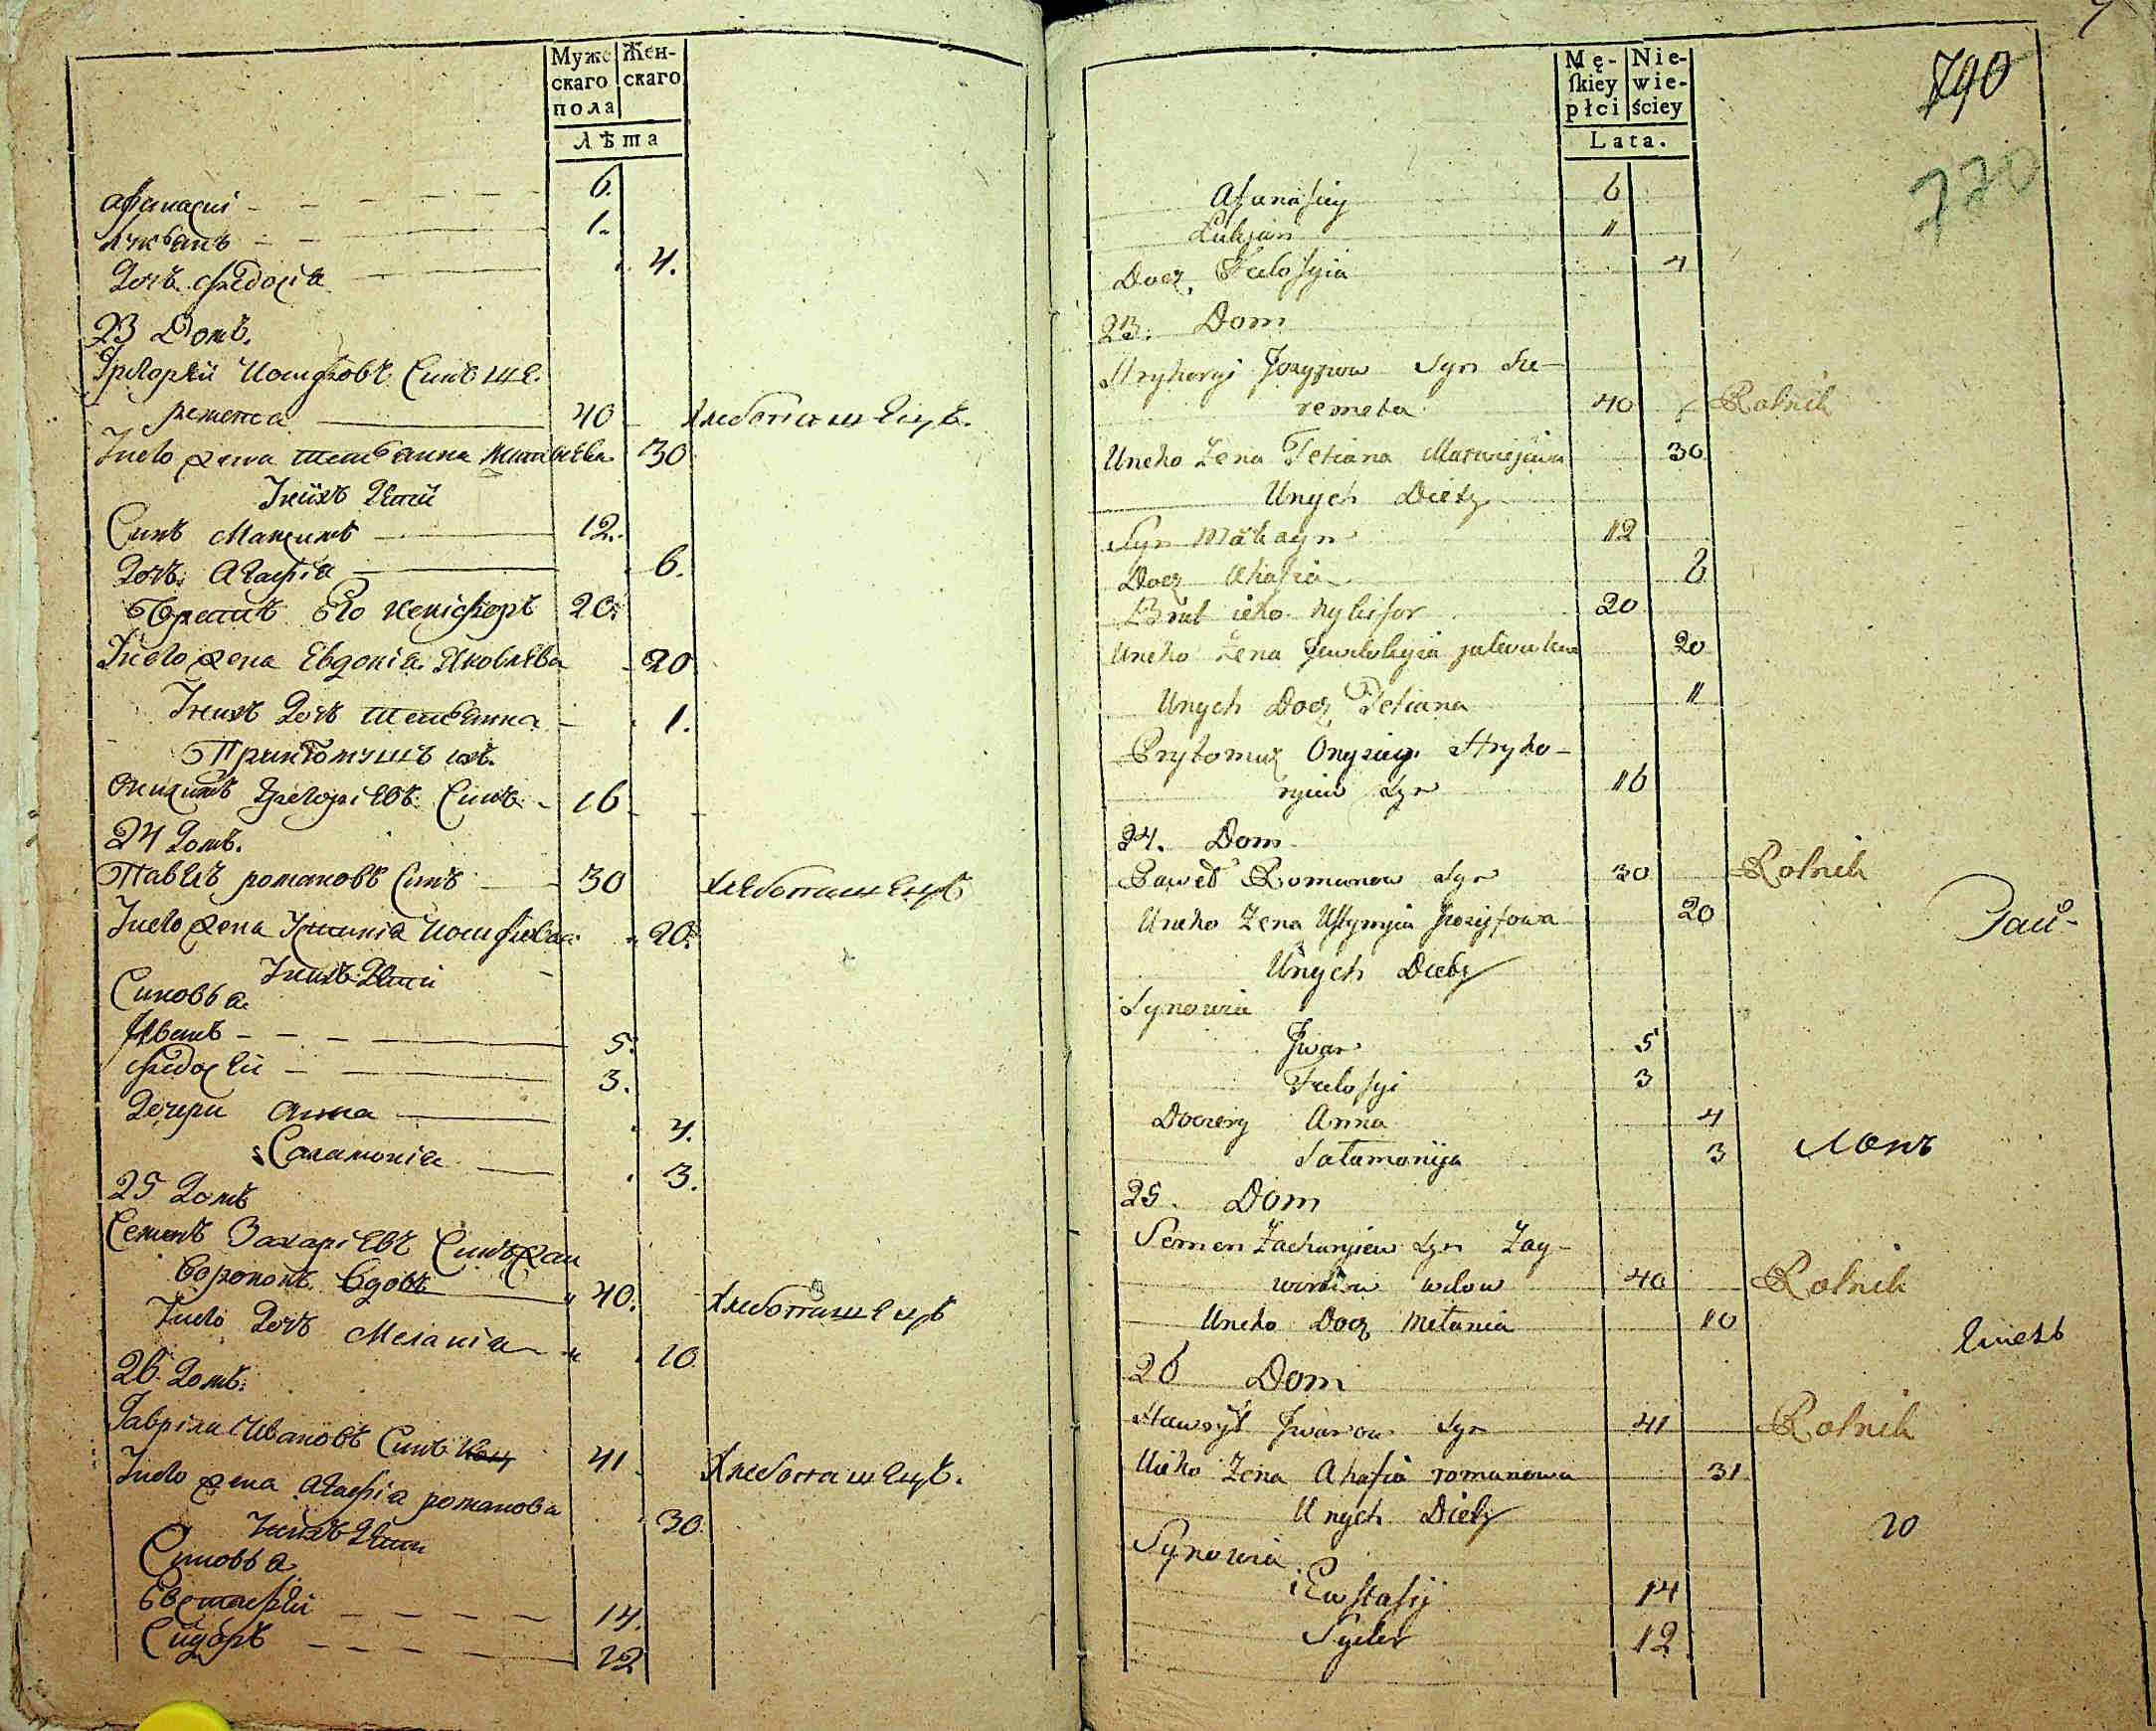 Муже
скаго
пола
Жен-
скаго
Лѣта
Афанасій 6.
Лукьянъ 1.
Дочь Федосіа 4.
23 Домъ.
Григорей Иосифовъ Синъ Ше-
ремета 40 Хлебопашецъ.
Унего жена Тетьянна Матвѣева 30
Унихъ дѣтй
Синъ Максимъ 12.
Дочь Агафіа 6.
Братъ его Никифоръ 20.
Унего жена Евдокіа Яковлева 20
Унихъ дочь Тетьянна 1.
Притомуш их.
Онисимъ Григоріевъ Синъ 16
24 Домъ.
Павелъ Романовъ Синъ 30 Хлебопашецъ
Унего жена Устиніа Иосифова 20.
Унихъ дѣти
Синовьа
Иванъ 5.
Федосей 3.
Дочери Анна 4.
Саламоніа 3.
25 Домъ
Семенъ Захаріевъ Синъ Жай
воронокъ вдовъ 40. Хлебопашецъ
Унего дочь Меланіа 10
26 Домъ.
Гавріла Ивановъ Синъ 41 Хлебопашецъ.
Унего жена Агафіа Романова 30
Унихъ дѣти
Синовьа
Евстафей 14.
Сидоръ 12
Mę-
skiey
płci
Nie-
wie-
ściey
Lata.
790
770
Afanasiey 6
Łukjan 1
Docz Fedosyia 4
23. Dom
Hryhoryi Jozypow Syn Sze-
remeta 40 Rolnik
Uneho Żena Tetiana Matwiejewa 30
Unych Diety
Syn Maksym 12
Docz Ahafia 6
Brat ieho Nykifor 20
Uneho Żena Jewdokyia Jakowlewa 20
Unych Docz Tetiana 1
Prytomuż Onysiey Hryho-
ryiew Syn 16
24. Dom
Paweł Romanow Syn 30 Rolnik
Uneho Żena Ustynyia Jozyfowa 20
Рай-
Unych Diety
Synowia
Jwan 5
Fedosyi 3
Doczery Anna 4
Sałamonija 3
25. Dom
Semen Zacharyiew Syn Żay-
woronow wdow 40 Rolnik
Uneho Docz Mełania 10
26 Dom
Hawrył Jwanow Syn 41 Rolnik
Uieho Żena Ahafia Romanowa 31
Unych Diety
20
Synowia
Ewstafij 14
Sydor 12